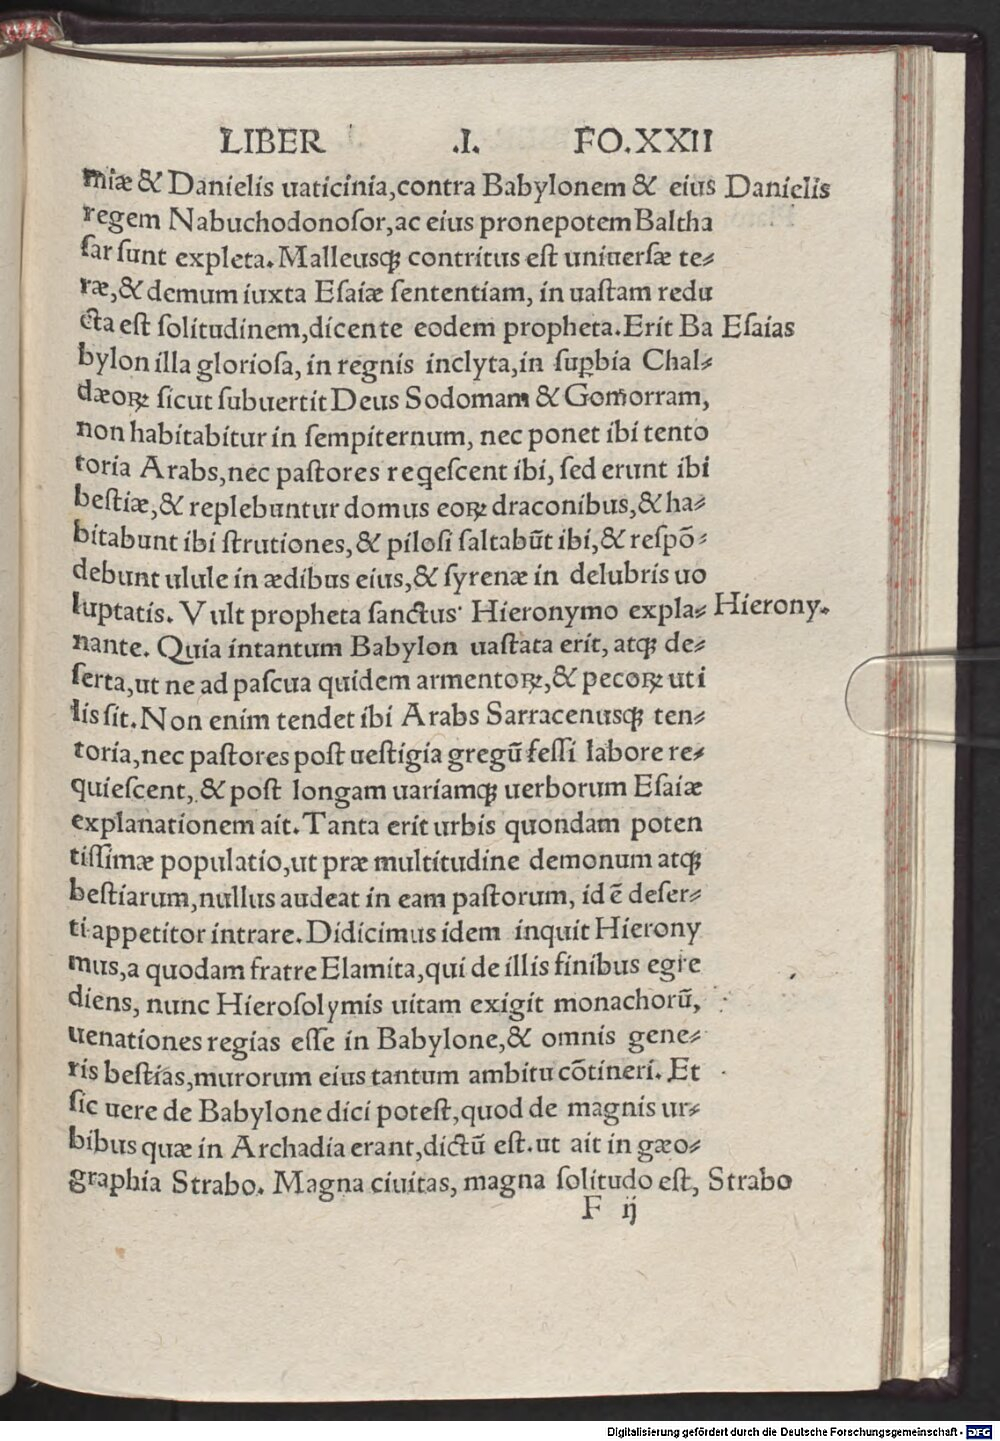 LIBER .I. FO.XXII
miæ & Danielis uaticinia,contra Babylonem & eius Danielis
regem Nabuchodonoſor,ac eius pronepotem Baltha
ſar ſunt expleta. Malleusq́ꝫ contritus eſt uniuerſæ te⸗
ræ,& demum iuxta Eſaiæ ſententiam, in uaſtam redu
cta eſt ſolitudinem,dicente eodem propheta. Erit Ba Eſaias
bylon illa glorioſa, in regnis inclyta,in ſuꝑbia Chal⸗
dæoꝝ ſicut ſubuertit Deus Sodomam & Gomorram,
non habitabitur in ſempiternum, nec ponet ibi tento
toria Arabs,nec paſtores reqeſcent ibi, ſed erunt ibi
beſtiæ,& replebuntur domus eoꝝ draconibus,& ha⸗
bitabunt ibi ſtrutiones,& piloſi ſaltabūt ibi,& reſpō⸗
debunt ulule in ædibus eius,& ſyrenæ in delubris uo
luptatis. Vult propheta ſanctus Hieronymo expla⸗ Hierony.
nante. Quia intantum Babylon uaſtata erit, atqꝫ de⸗
ſerta,ut ne ad paſcua quidem armentoꝝ,& pecoꝝ uti
lis ſit. Non enim tendet ibi Arabs Sarracenusqꝫ ten⸗
toria,nec paſtores poſt ueſtigia gregū feſſi labore re⸗
quieſcent, & poſt longam uariamqꝫ uerborum Eſaiæ
explanationem ait. Tanta erit urbis quondam poten
tiſſimæ populatio,ut præ multitudine demonum atqꝫ
beſtiarum,nullus audeat in eam paſtorum, id ē deſer⸗
ti appetitor intrare. Didicimus idem inquit Hierony
mus,a quodam fratre Elamita,qui de illis finibus egre
diens, nunc Hieroſolymis uitam exigit monachorū,
uenationes regias eſſe in Babylone,& omnis gene⸗
ris beſtias,murorum eius tantum ambitu cōtineri. Et
ſic uere de Babylone dici poteſt,quod de magnis ur⸗
bibus quæ in Archadia erant,dictū eſt. ut ait in gæo⸗
graphia Strabo. Magna ciuitas, magna ſolitudo eſt, Strabo
F ij
Digitalisierung gefördert durch die Deutsche Forschungsgemeinschaft - DFG